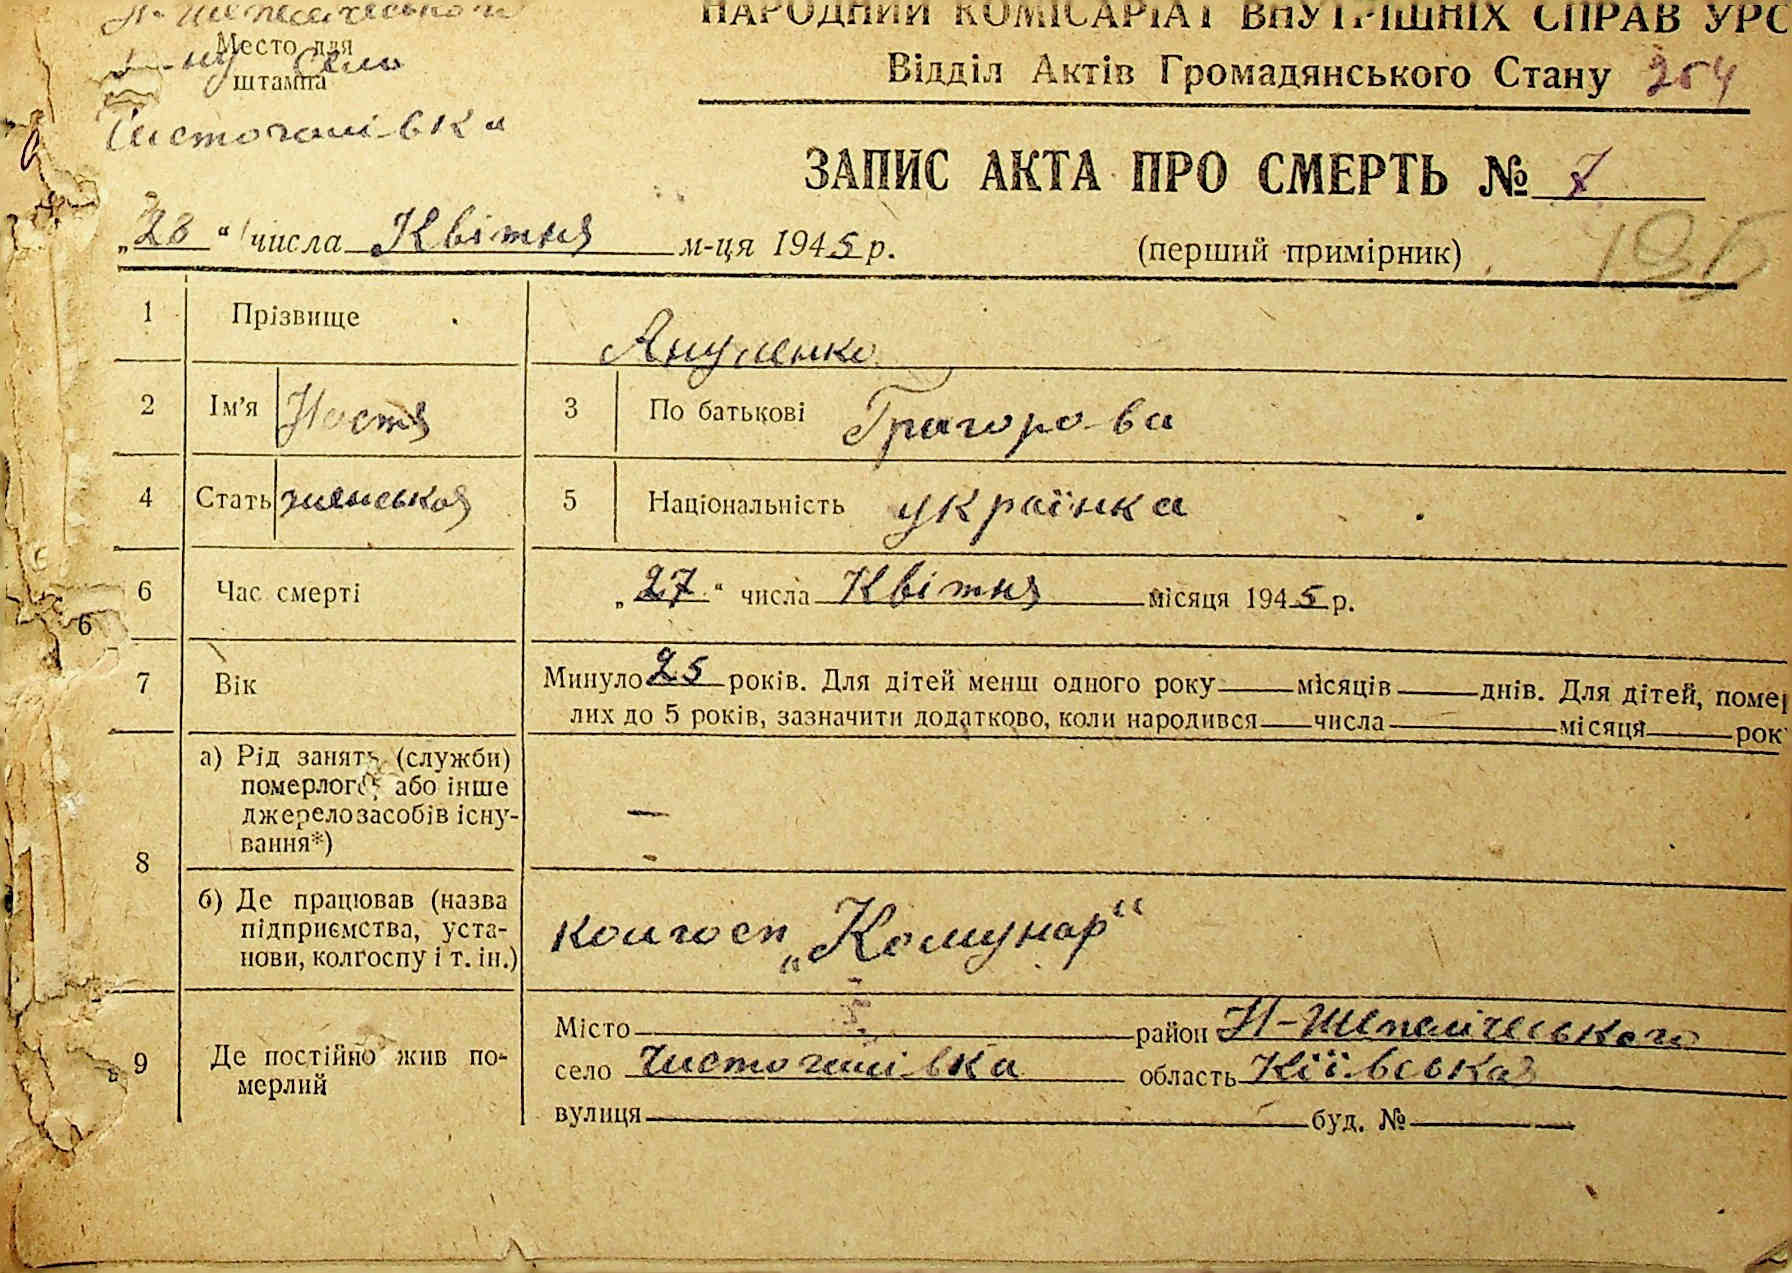 Н-Шепеличеського
Место для
р-ну Село
штампа
Чистогалівка
НАРОДНИЙ КОМІСАРІАТ ВНУТРІШНІХ СПРАВ УРС
Відділ Актів Громадянського Стану 254
ЗАПИС АКТА ПРО СМЕРТЬ № 7
„28“ числа Квітня м-ця 1945 р. (перший примірник)
1 Прізвище
2 Ім'я Настя 3 По батькові Григорова
4 Стать 5 Національність українка
6 Час смерті „27“ числа Квітня місяця 1945 р.
6
7 Вік Минуло 25 років. Для дітей менш одного року місяців днів. Для дітей, помер
лих до 5 років, зазначити додатково, коли народився числа місяця рок
8 а) Рід занять (служби)
померлого, або інше
джерело засобів існу-
вання*) —
б) Де працював (назва
підприємства, уста-
нови, колгоспу і т. ін.) колгосп „Комунар“
9 Де постійно жив по-
мерлий
Місто район Н-Шепелічеського
село Чистогалівка область Кіївська
вулиця буд. №